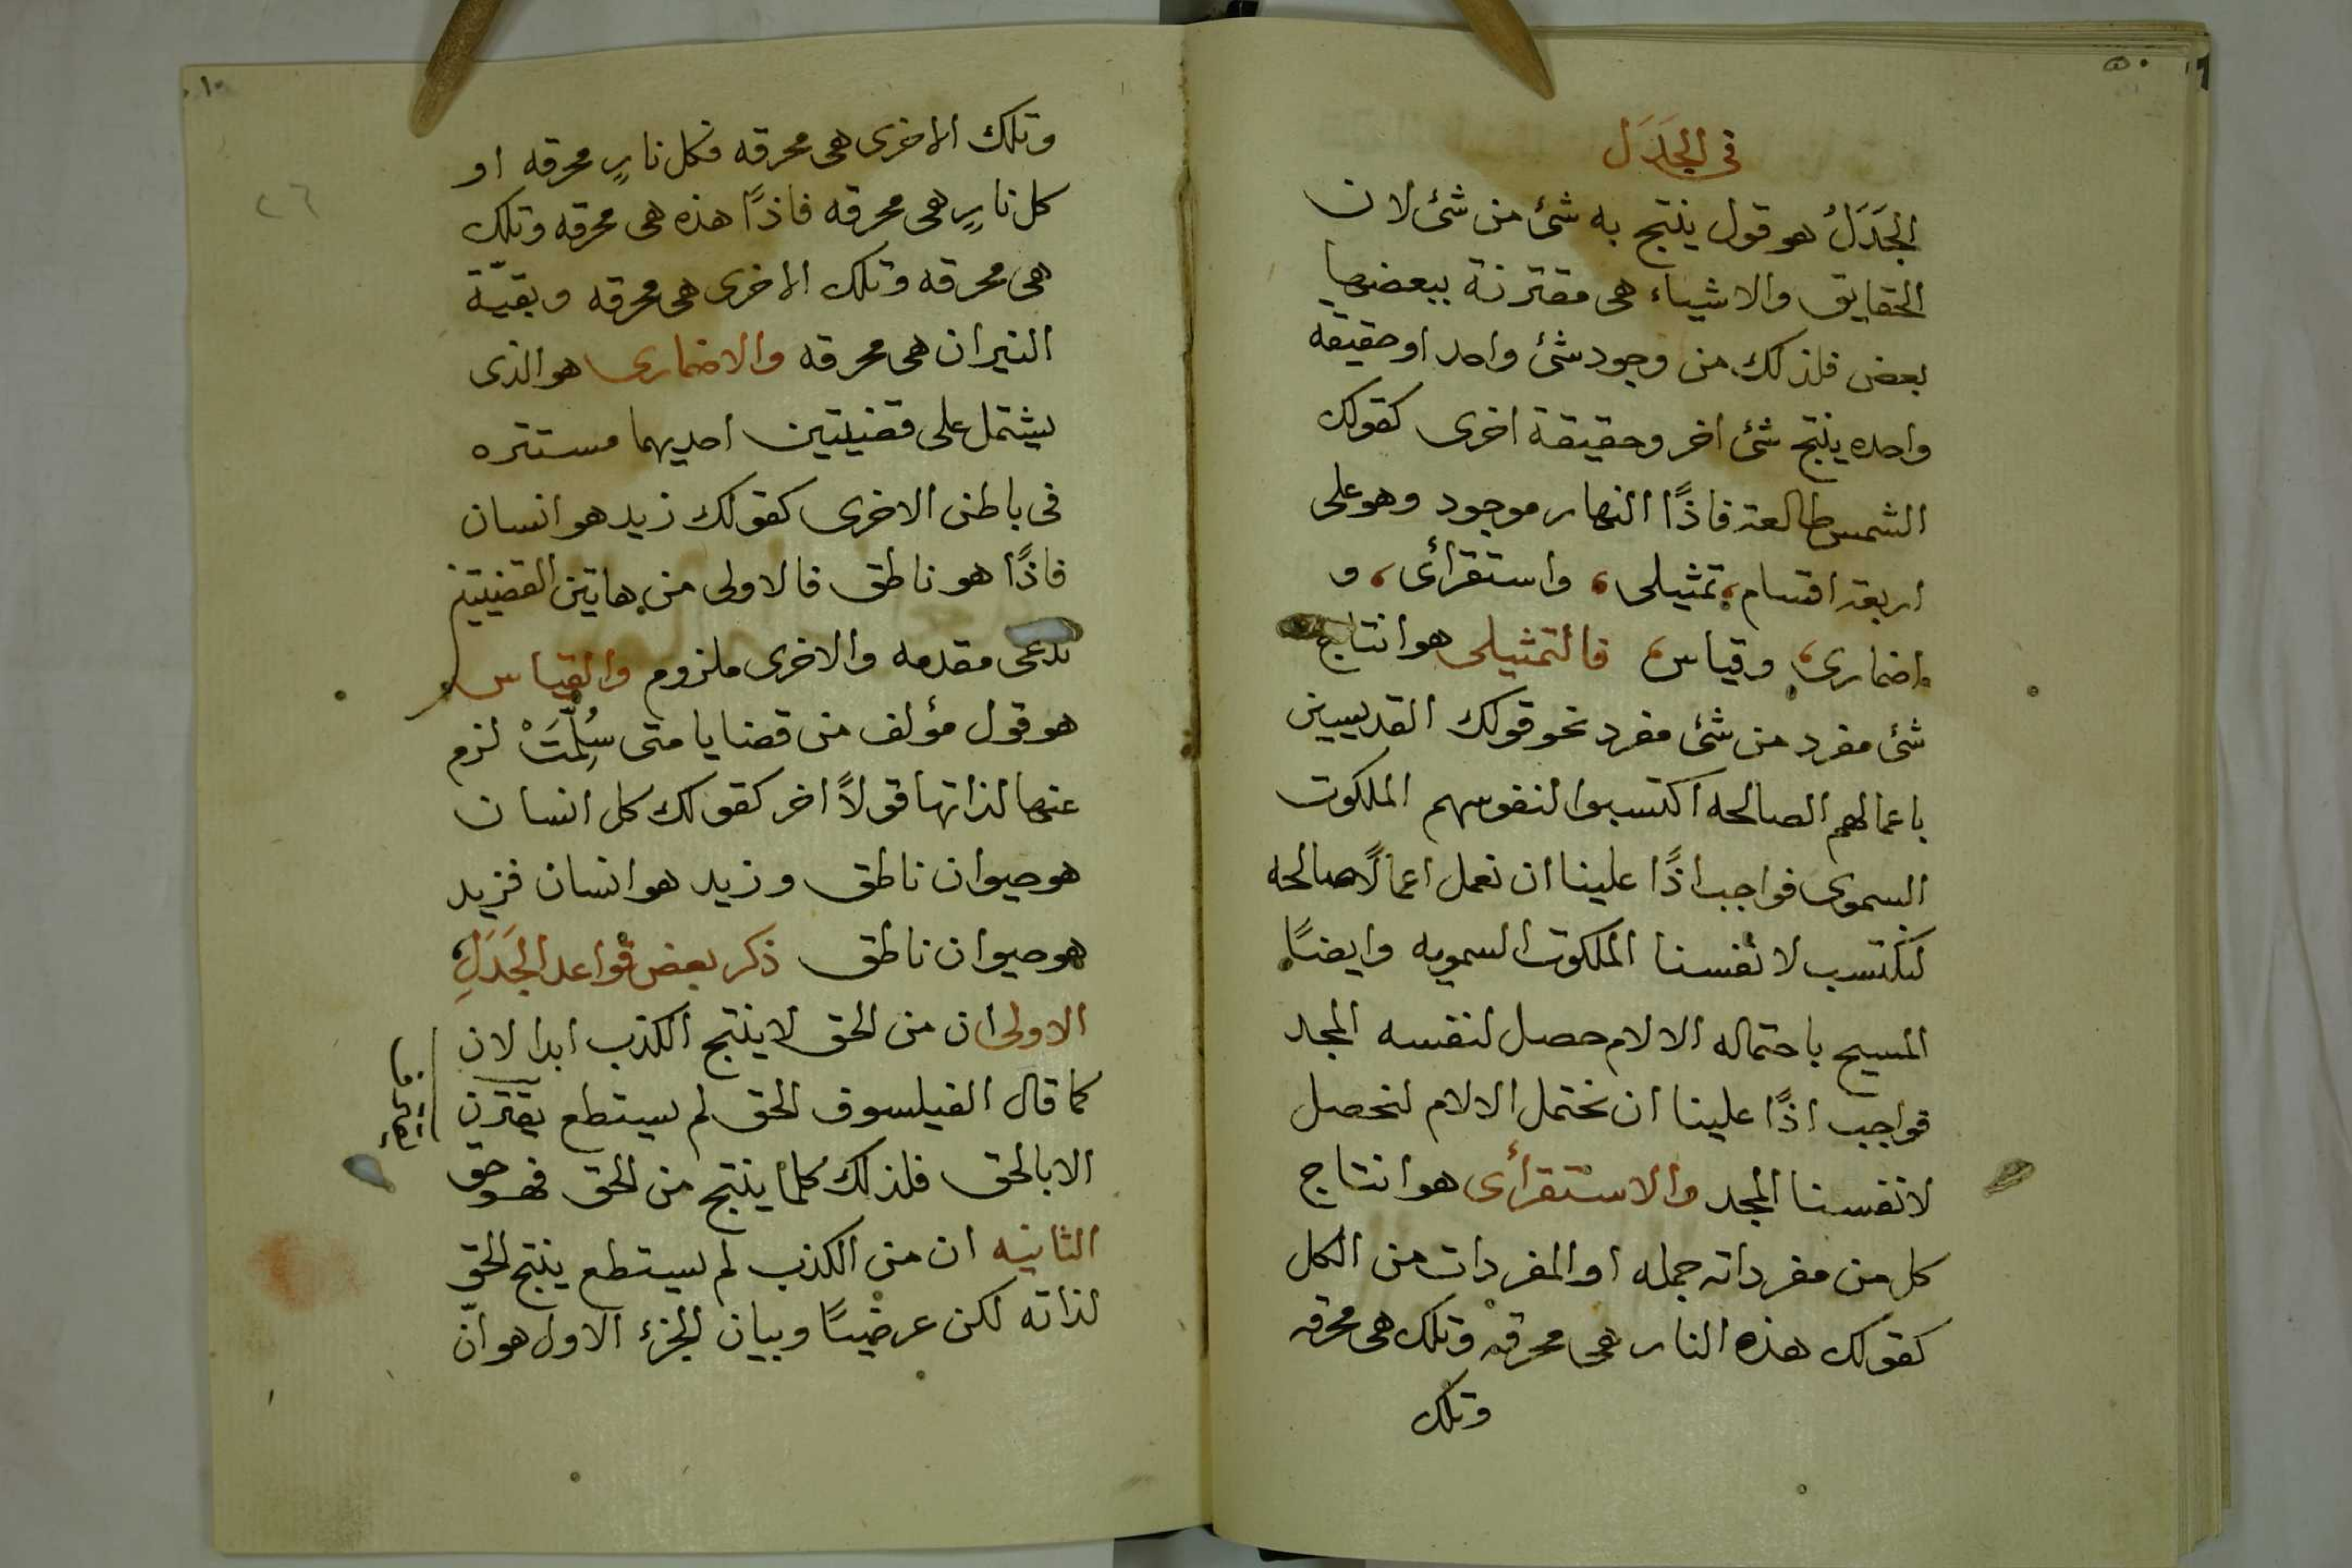 فى الجَدَل
الجَدَلُ هو قول ينتج به شئ من شئ لان
الحقايق والاشياء هى مقترنة ببعضها
بعض فلذلك من وجود شئ واحد او حقيقه
واحده ينتج شئ اخر وحقيقة اخرى كقولك
الشمس طالعة فاذًا النهار موجود وهو على
اربعة اقسام، تمثيلى، واستقرأى، و
اضمارى، وقياس، فالتمثيلى هو انتاج
شئ مفرد من شئ مفرد نحو قولك القديسين
باعمالهم الصالحه اكتسبوا لنفوسهم الملكوت
السموى فواجب اذًا علينا ان نعمل اعمالًا صالحه
لنكتسب لانفسنا الملكوت السمويه وايضًا
المسيح باحتماله الالام حصل لنفسه المجد
فواجب اذًا علينا ان نحتمل الالام لنحصل
لانفسنا المجد والاستقرأى هو انتاج
كل من مفرداته جمله او المفردات من الكل
كقولك هذه النار هى محرقه وتلك هى محرقه
وتلك
١٠
٢٦
وتلك الاخرى هى محرقه فكل نارٍ محرقه او
كل نارٍ هى محرقه فاذًا هذه هى محرقه وتلك
هى محرقه وتلك الاخرى هى محرقه وبقيّة
النيران هى محرقه والاضمارى هو الذى
يشتمل على قضيتين احديهما مستتره
فى باطن الاخرى كقولك زيد هو انسان
فاذًا هو ناطق فالاولى من هاتين القضيتين
تدعى مقدمه والاخرى ملزوم والقياس
هو قول مؤلف من قضايا متى سُلِّمَتْ لزم
عنها لذاتها قولًا اخر كقولك كل انسان
هو حيوان ناطق وزيد هو انسان فزيد
هو حيوان ناطق ذكر بعض قواعد الجَدَلِ
الاولى ان من الحق لا ينتج الكذب ابدا لان
كما قال الفيلسوف الحق لم يستطع يقترن
الا بالحق فلذلك كلما ينتج من الحق فهو حق
الثانيه ان من الكذب لم يستطع ينتج الحق
لذاته لكن عرضيًا وبيان الجزء الاول هو انّ